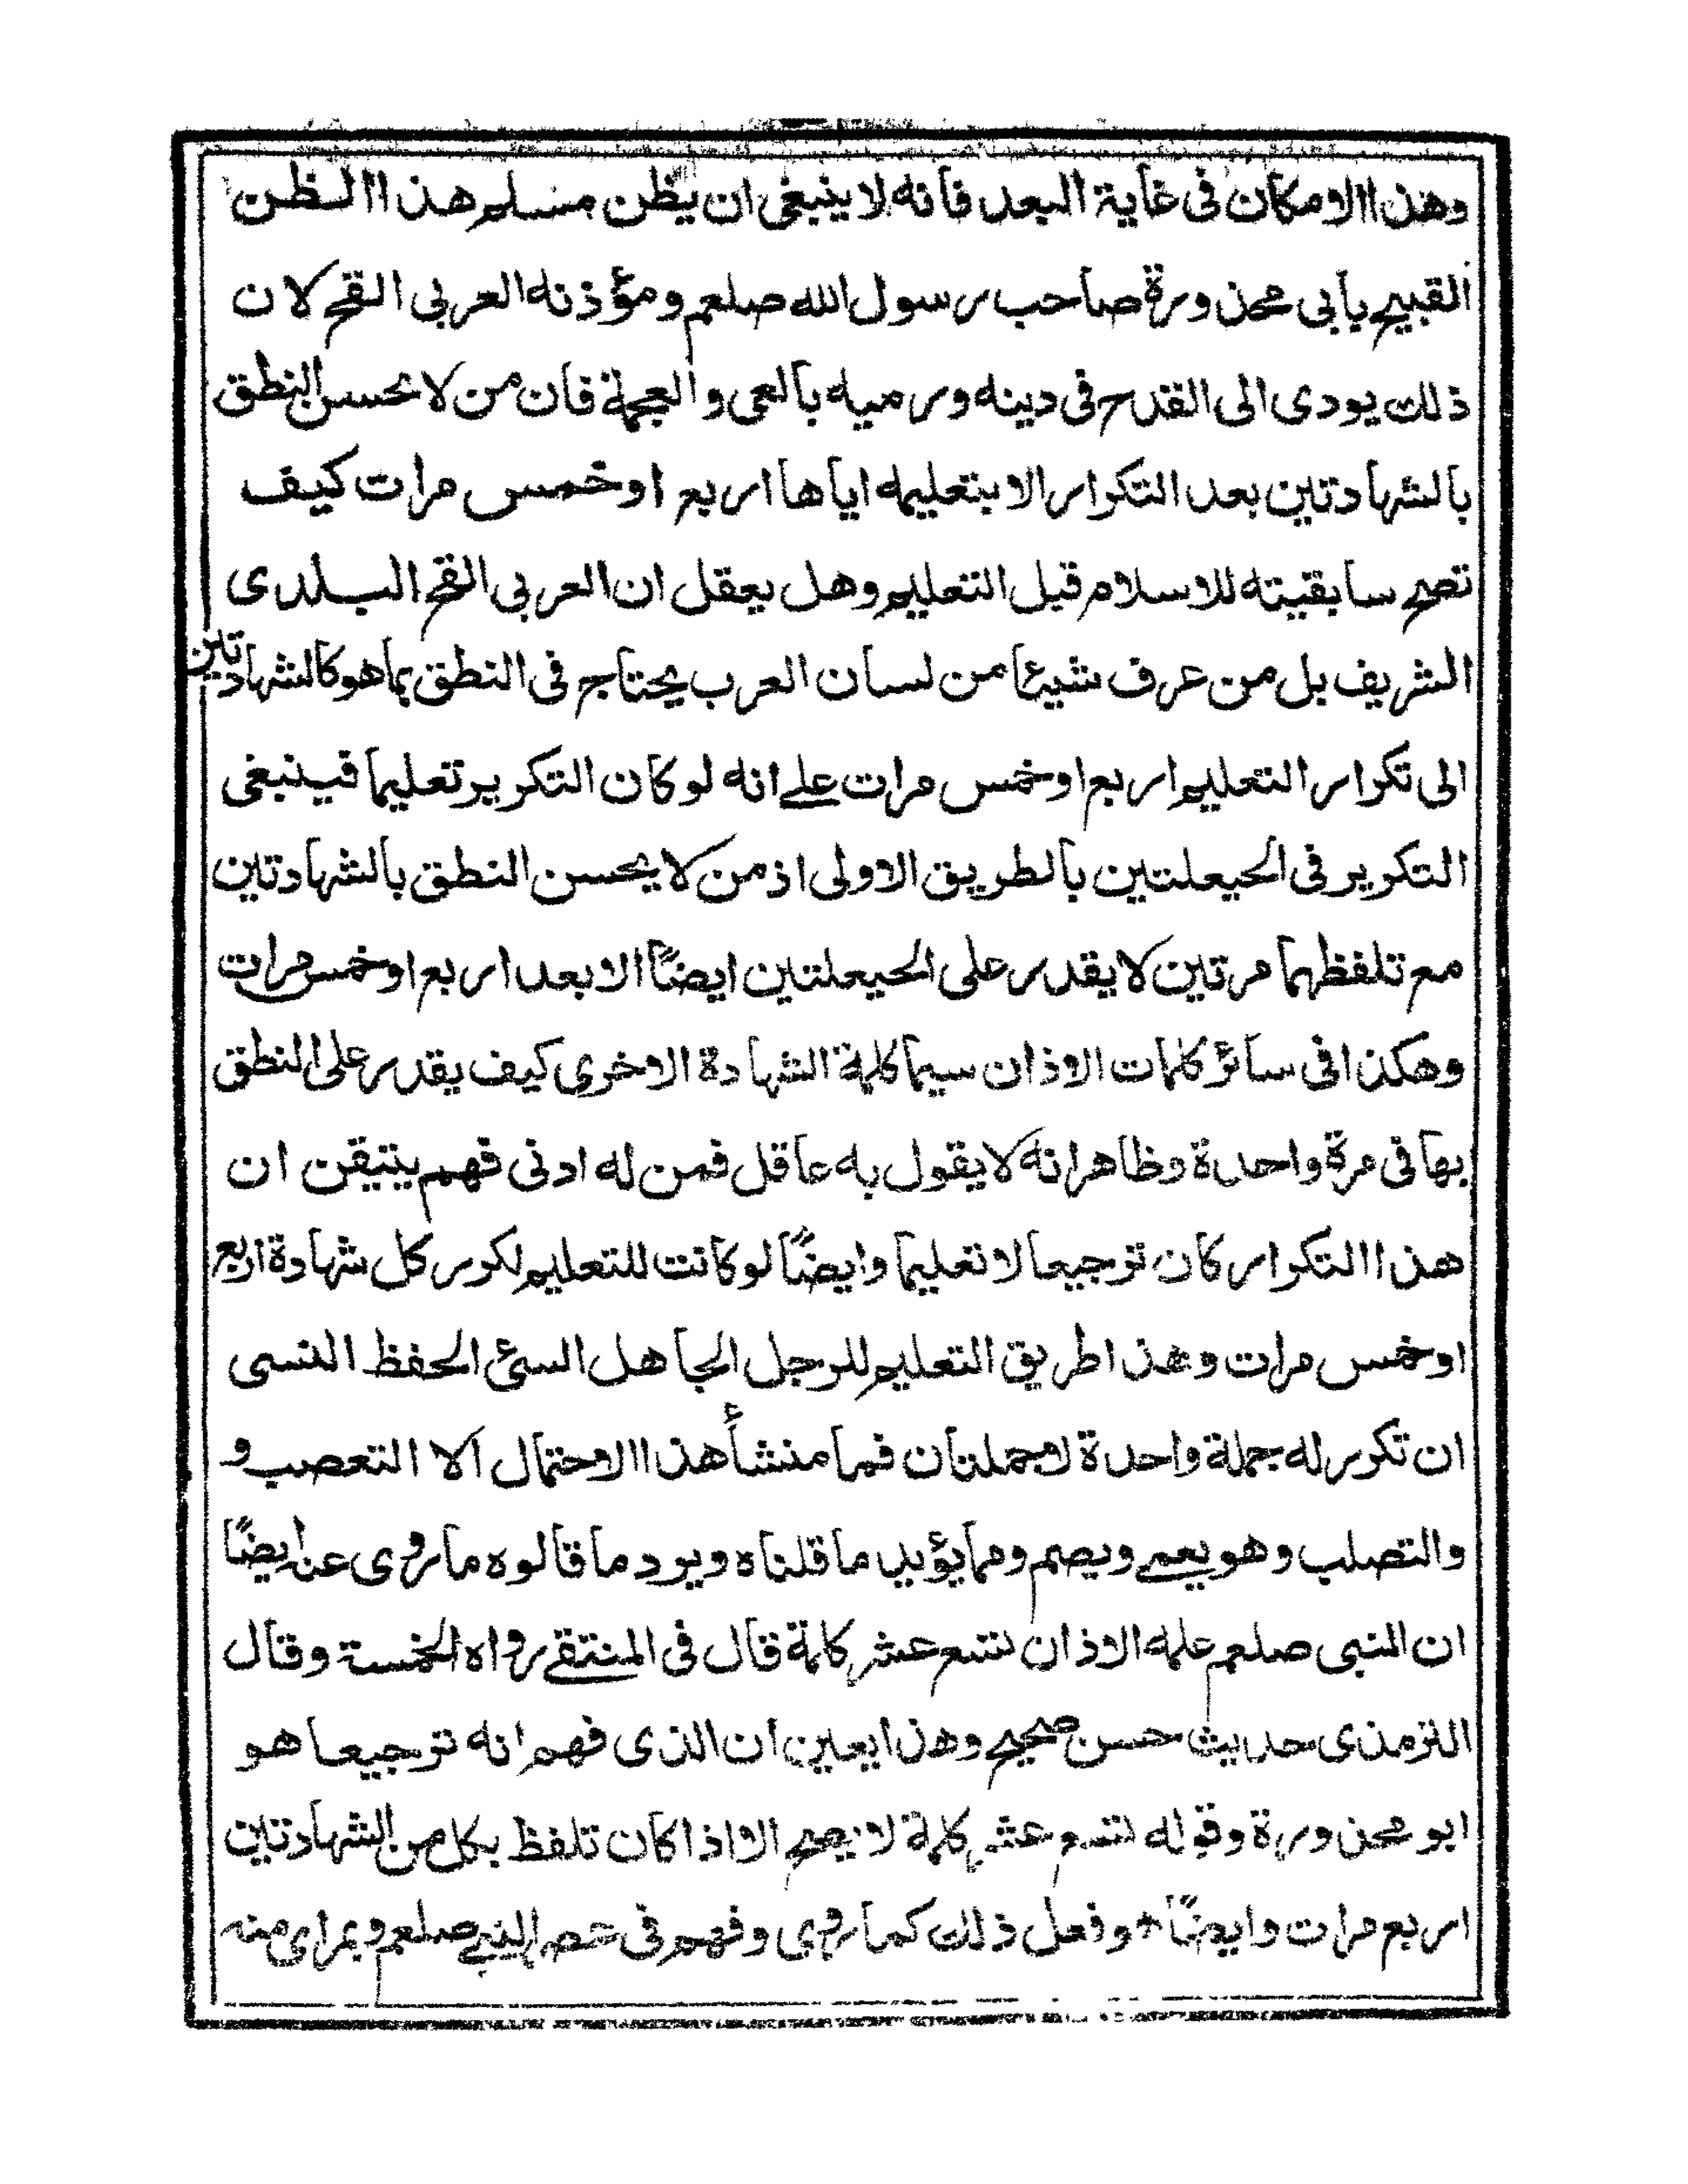 وهذا الامكان في غاية البعد فانه لا ينبغي ان يظن مسلم هذا الظن
القبيح بابي محذورة صاحب رسول الله صلعم ومؤذنه العربي القح لان
ذلك يودى الى القدح في دينه ورميه بالعي والعجمة فان من لا يحسن النطق
بالشهادتين بعد التكرار الا بتعليمه اياها اربع او خمس مرات كيف
تصح سابقيته للاسلام قبل التعليم وهل يعقل ان العربي القح البلدى
الشريف بل من عرف شيئا من لسان العرب يحتاج في النطق بما هو كالشهادتين
الى تكرار التعليم اربع او خمس مرات علے انه لو كان التكرير تعليما فينبغي
التكرير في الحيعلتين بالطريق الاولى اذ من لا يحسن النطق بالشهادتين
مع تلفظهما مرتين لا يقدر على الحيعلتين ايضًا الا بعد اربع او خمس مرات
وهكذا في سائر كلمات الاذان سيما كلمة الشهادة الاخرى كيف يقدر على النطق
بها في مرة واحدة وظاهر انه لا يقول به عاقل فمن له ادنى فهم يتيقن ان
هذا التكرار كان ترجيعا لا تعليما وايضًا لو كانت للتعليم لكرر كل شهادة اربع
او خمس مرات وهذا طريق التعليم للرجل الجاهل السئ الحفظ النسى
ان تكرر له جملة واحدة لا جملتان فما منشأ هذا الاحتمال الا التعصب و
والتصلب وهو يعمے ويصم ومما يؤيد ما قلناه ويرد ما قالوه ما روى عن ايضًا
ان النبي صلعم علمه الاذان تسع عشر كلمة قال في المنتقے رواه الخمسة وقال
الترمذى حديث حسن صحيح وهذا يعين ان الذى فهم انه ترجيعا هو
ابو محذورة وقوله تسع عشر كلمة لا يصح الا اذا كان تلفظ بكل من الشهادتين
اربع مرات وايضًا وفعل ذلك كما روى وفهم في حصر النبے صلعم وبمراى منه